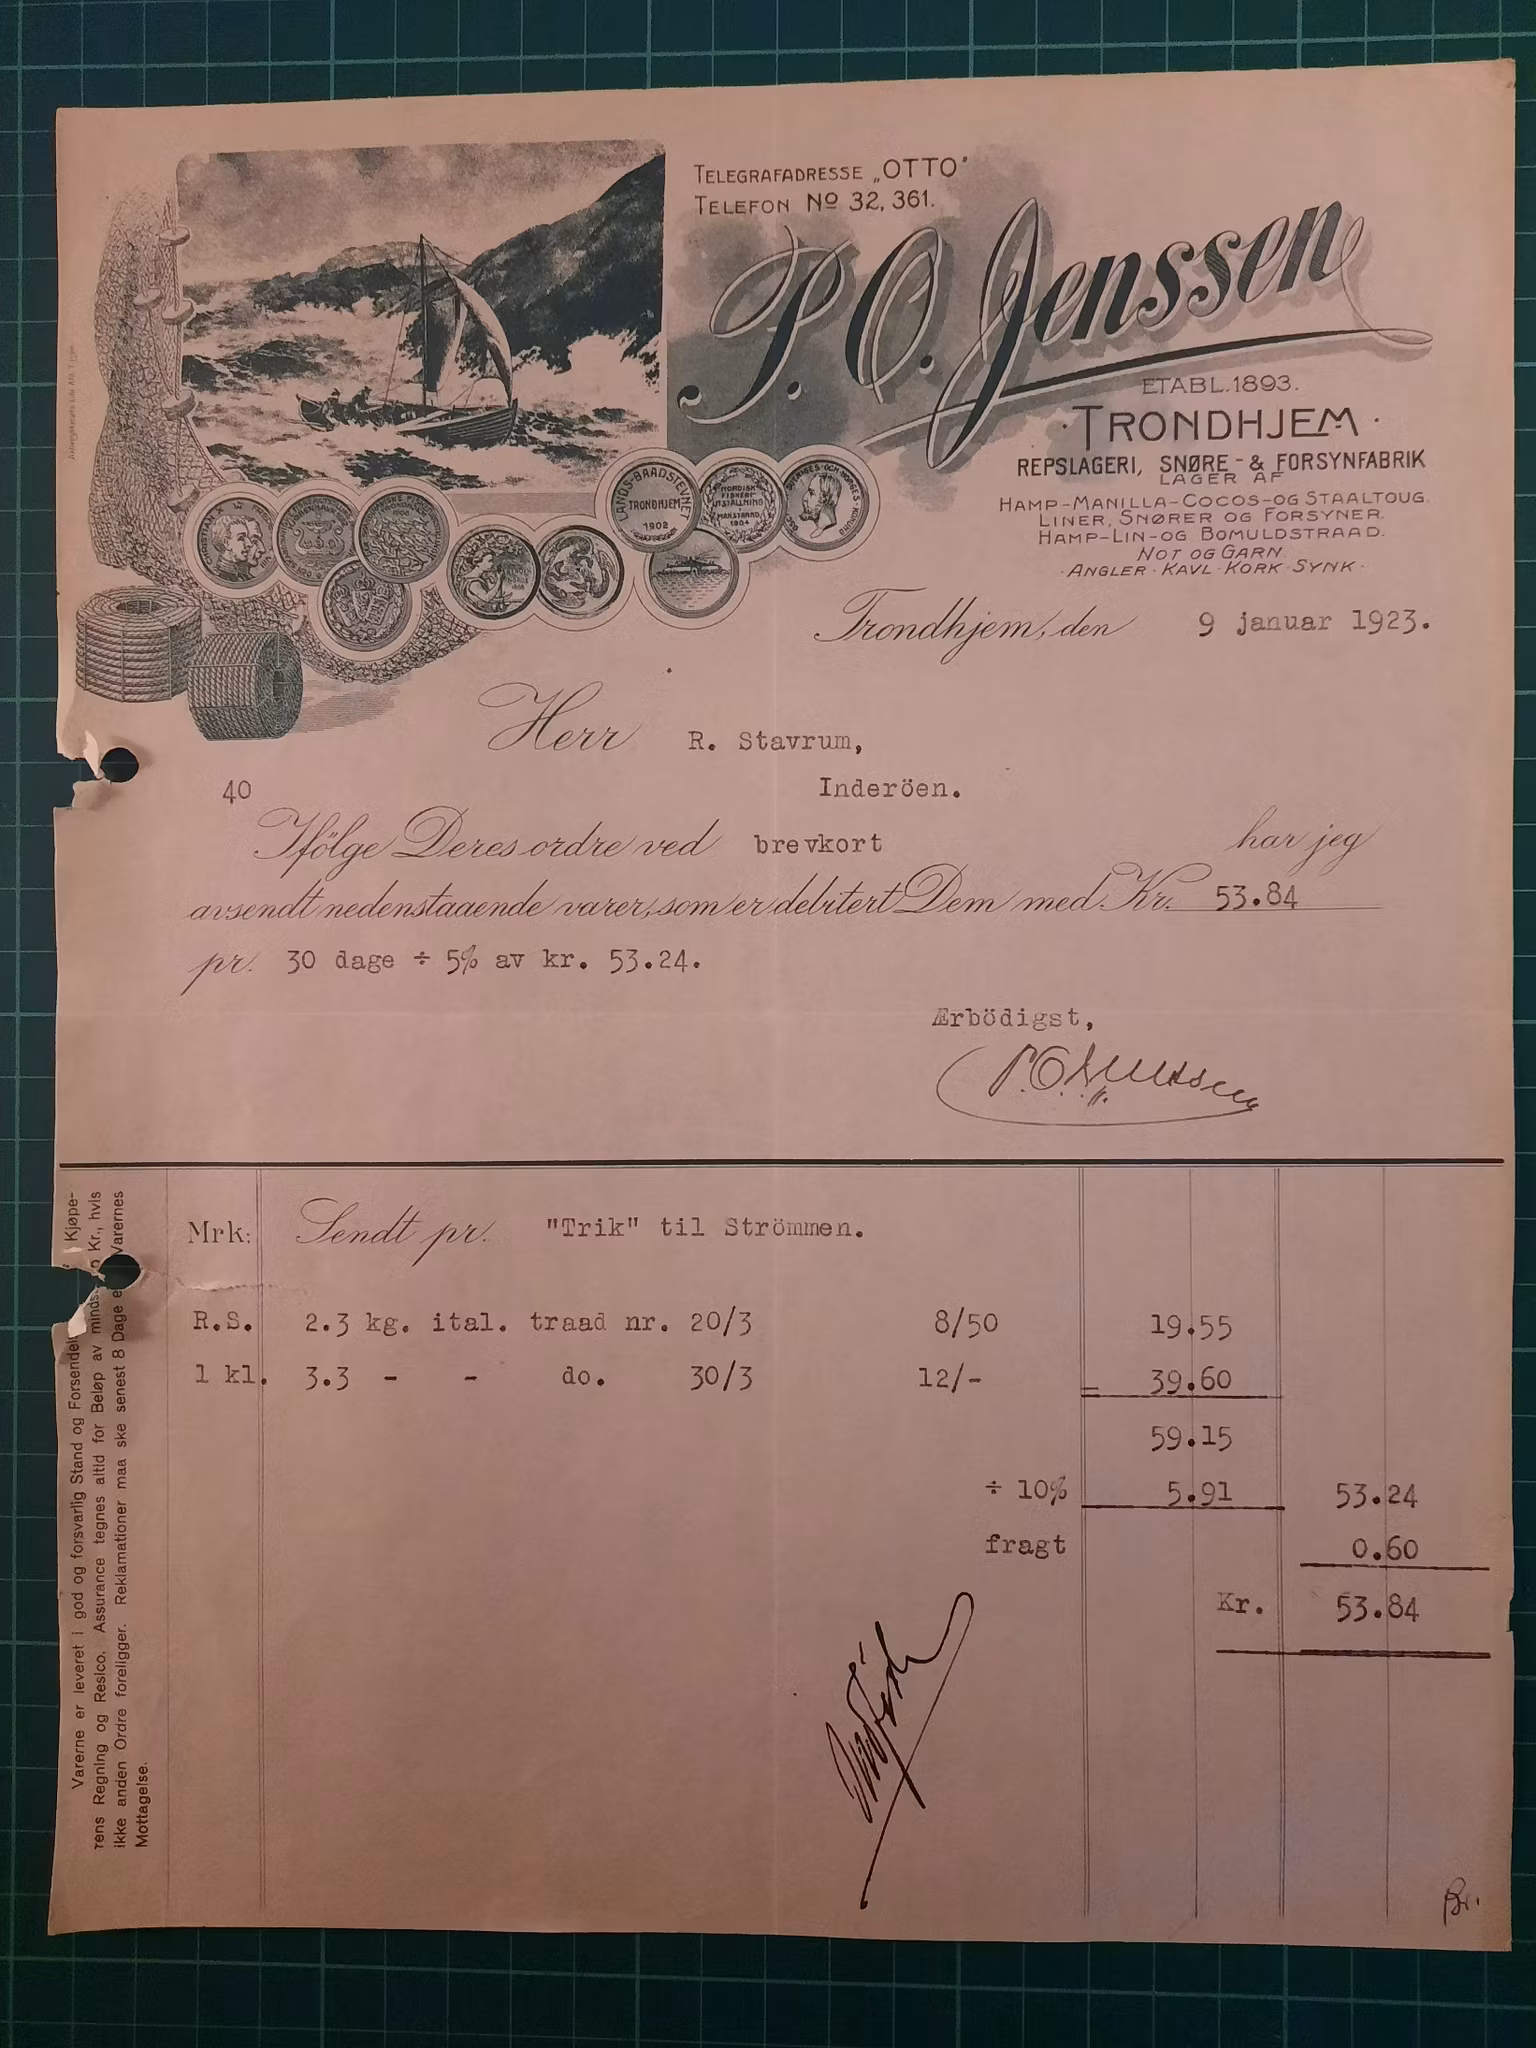 TELEGRAFADRESSE „OTTO"
TELEFON No 32, 361.
P. O. Jenssen
ETABL. 1893.
· TRONDHJEM ·
REPSLAGERI, SNØRE- & FORSYNFABRIK
LAGER AF
HAMP-MANILLA-COCOS-OG STAALTOUG.
LINER, SNØRER OG FORSYNER.
HAMP-LIN-OG BOMULDSTRAAD.
NOT OG GARN
· ANGLER · KAVL · KORK · SYNK ·
LANDS-BAADSTEVNE
TRONDHJEM
1902
NORDISK
FISKERI
UTSTÄLLNING
MARSTRAND
1904
CHRISTIAN X
Trondhjem, den 9 januar 1923.
Herr R. Stavrum,
Inderöen.
40
Ifölge Deres ordre ved brevkort har jeg
avsendt nedenstaaende varer, som er debitert Dem med Kr. 53.84
pr. 30 dage ÷ 5% av kr. 53.24.
Ærbödigst,
P. O. Jenssen
Mrk: Sendt pr. "Trik" til Strömmen.
R.S. 2.3 kg. ital. traad nr. 20/3 8/50 19.55
1 kl. 3.3 - - do. 30/3 12/- = 39.60
59.15
÷ 10% 5.91 53.24
fragt 0.60
Kr. 53.84
Br.
Varerne er leveret i god og forsvarlig Stand og Forsendel Kjøpe-
rens Regning og Resico. Assurance tegnes altid for Beløp av minds Kr., hvis
ikke anden Ordre foreligger. Reklamationer maa ske senest 8 Dage e Varernes
Mottagelse.